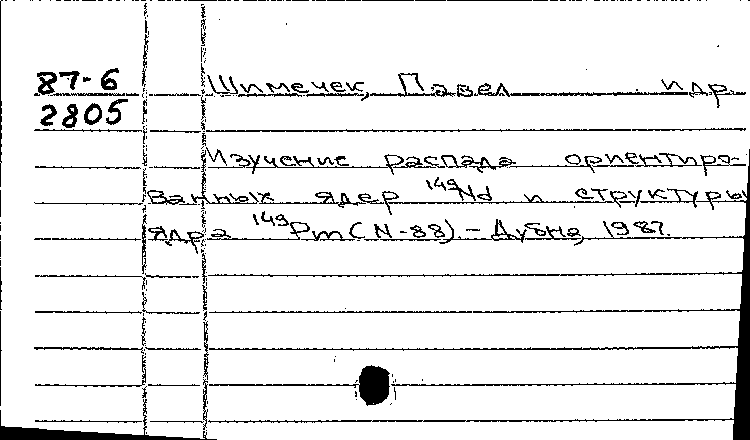 87-6 Шимечек, Павел и др.
2805
Изучение распада ориентиро-
ванных ядер ¹⁴⁹Nd и структуры
ядра ¹⁴⁹Pm (N-88). - Дубна, 1987.